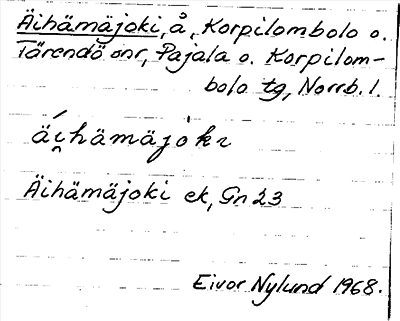 Äihämäjoki, å, Korpilombolo o.
Tärendö snr, Pajala o. Korpilom-
bolo tg, Norrb. l.
ä́i̯hämäjo̍kı
Äihämäjoki ek, Gn 23
Eivor Nylund 1968.